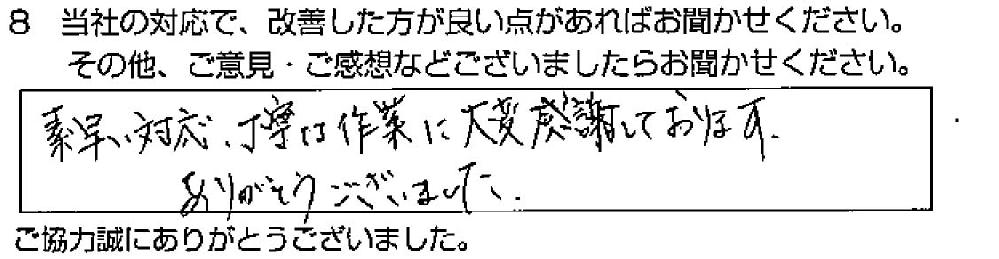 8 当社の対応で、改善した方が良い点があればお聞かせください。
その他、ご意見・ご感想などございましたらお聞かせください。
素早い対応、丁寧な作業に大変感謝しております。
ありがとうございました。
ご協力誠にありがとうございました。